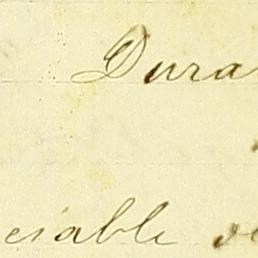 Dura
eiable